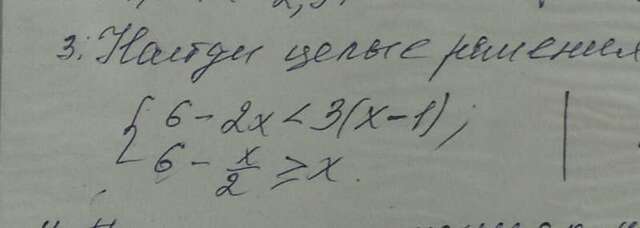 3. Найти целые решения
{ 6 - 2x < 3(x-1);
6 - x/2 ≥ x.